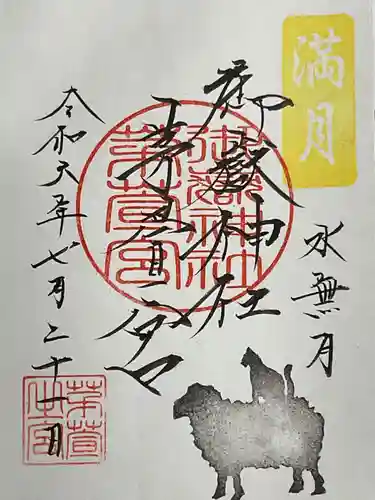 満月
水無月
御嶽神社
茅萱宮
令和六年七月二十一日
御嶽神社
茅萱宮
茅萱